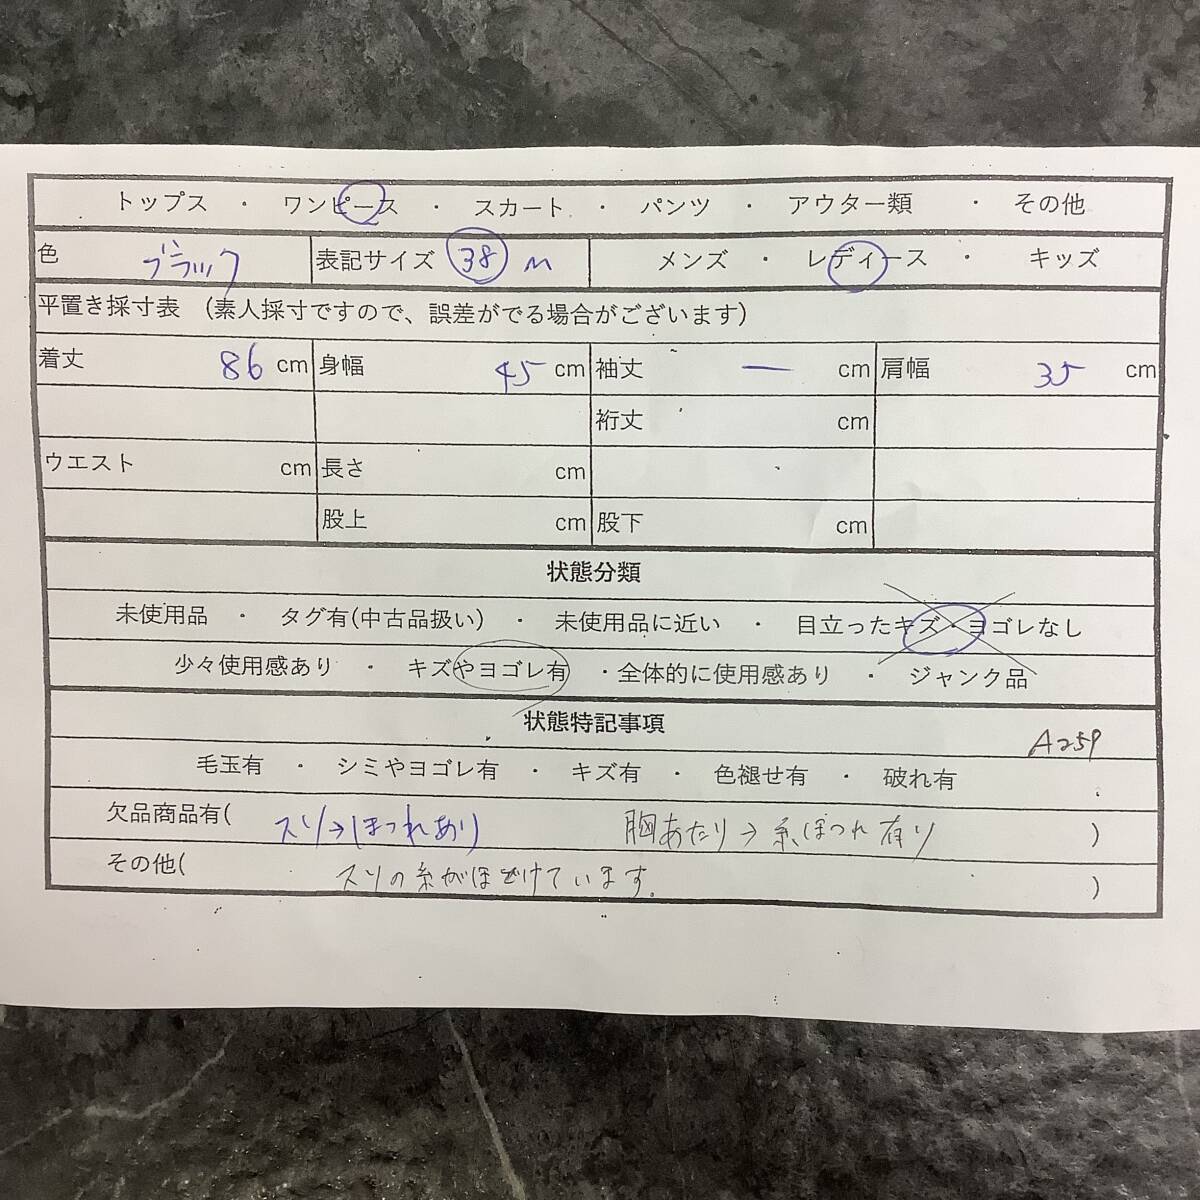 トップス ・ ワンピース ・ スカート ・ パンツ ・ アウター類 ・ その他
色 ブラック 表記サイズ 38 M メンズ ・ レディース ・ キッズ
平置き採寸表 (素人採寸ですので、誤差がでる場合がございます)
着丈 86 cm 身幅 45 cm 袖丈 ー cm 肩幅 35 cm
裄丈 cm
ウエスト cm 長さ cm
股上 cm 股下 cm
状態分類
未使用品 ・ タグ有(中古品扱い) ・ 未使用品に近い ・ 目立ったキズ・ヨゴレなし
少々使用感あり ・ キズやヨゴレ有 ・全体的に使用感あり ・ ジャンク品
状態特記事項
A259
毛玉有 ・ シミやヨゴレ有 ・ キズ有 ・ 色褪せ有 ・ 破れ有
欠品商品有( スソ→ほつれあり 胸あたり→糸ほつれ有り )
その他( スソの糸がほどけています。 )